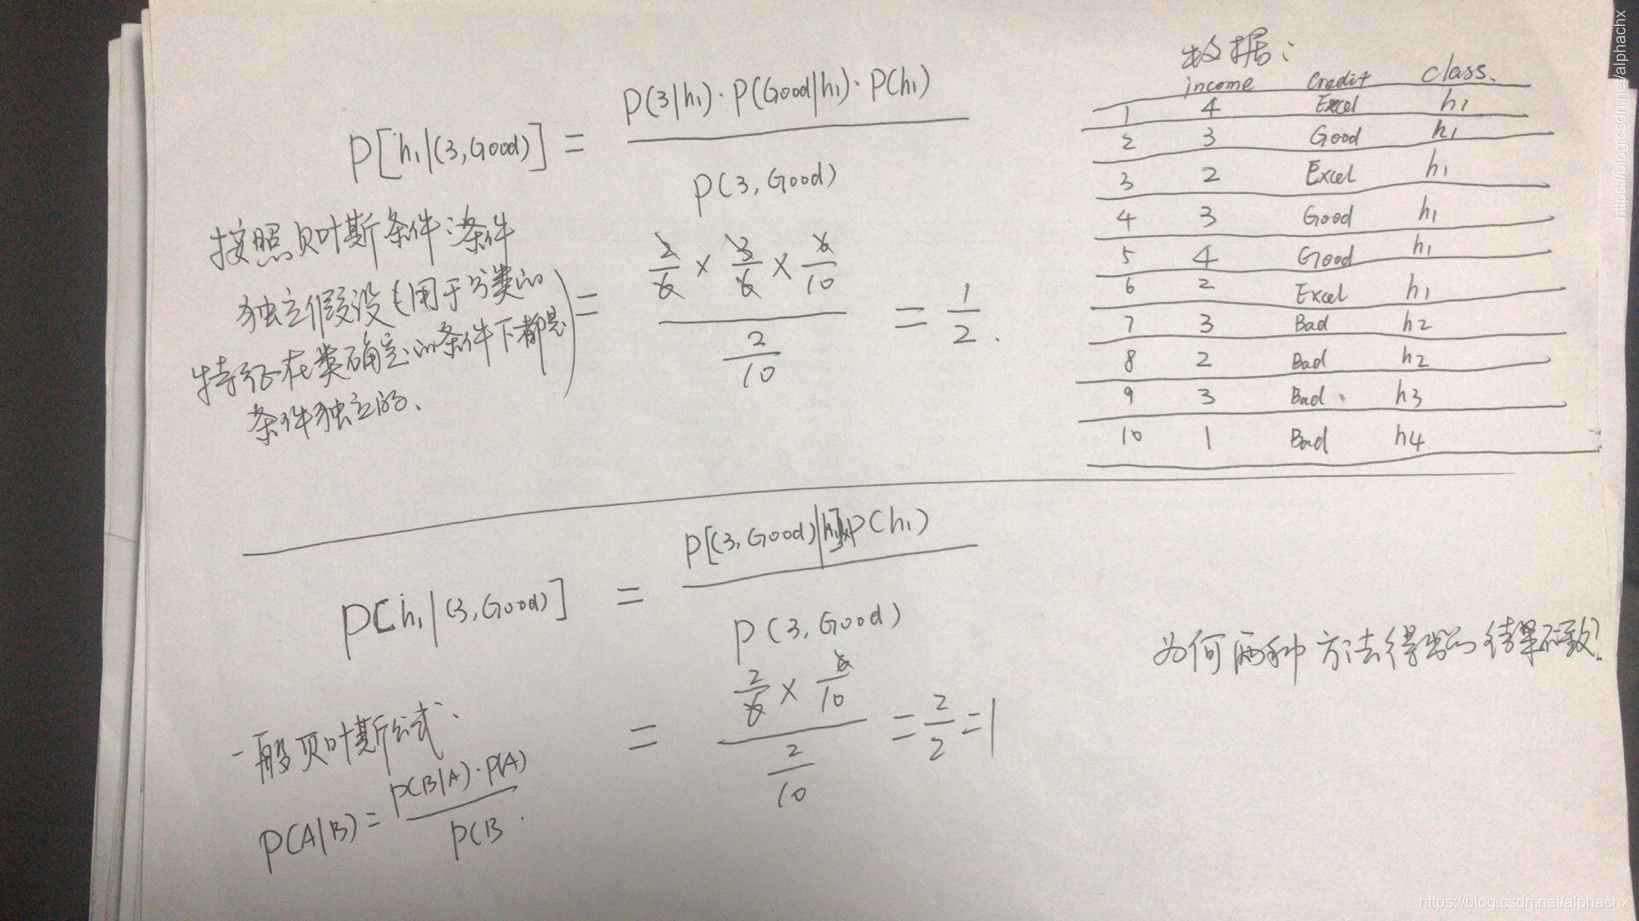 P[h₁|(3,Good)] = P(3|h₁)·P(Good|h₁)·P(h₁) / P(3,Good)
按照贝叶斯条件:条件
独立假设(用于分类的
特征在类确定的条件下都是
条件独立的、
)= 2/6 × 3/6 × 6/10 / 2/10 = 1/2.
数据:
income Credit class.
1 4 Excel h₁
2 3 Good h₁
3 2 Excel h₁
4 3 Good h₁
5 4 Good h₁
6 2 Excel h₁
7 3 Bad h2
8 2 Bad h2
9 3 Bad h3
10 1 Bad h4
P[h₁|(3,Good)] = P[(3,Good)|h₁]×P(h₁) / P(3,Good)
= 2/6 × 6/10 / 2/10 = 2/2 = 1
一般贝叶斯公式、
P(A|B) = P(B|A)·P(A) / P(B.
为何两种方法得出的结果不一致?
https://blog.csdn.net/alphachx
https://blog.csdn.net/alphachx